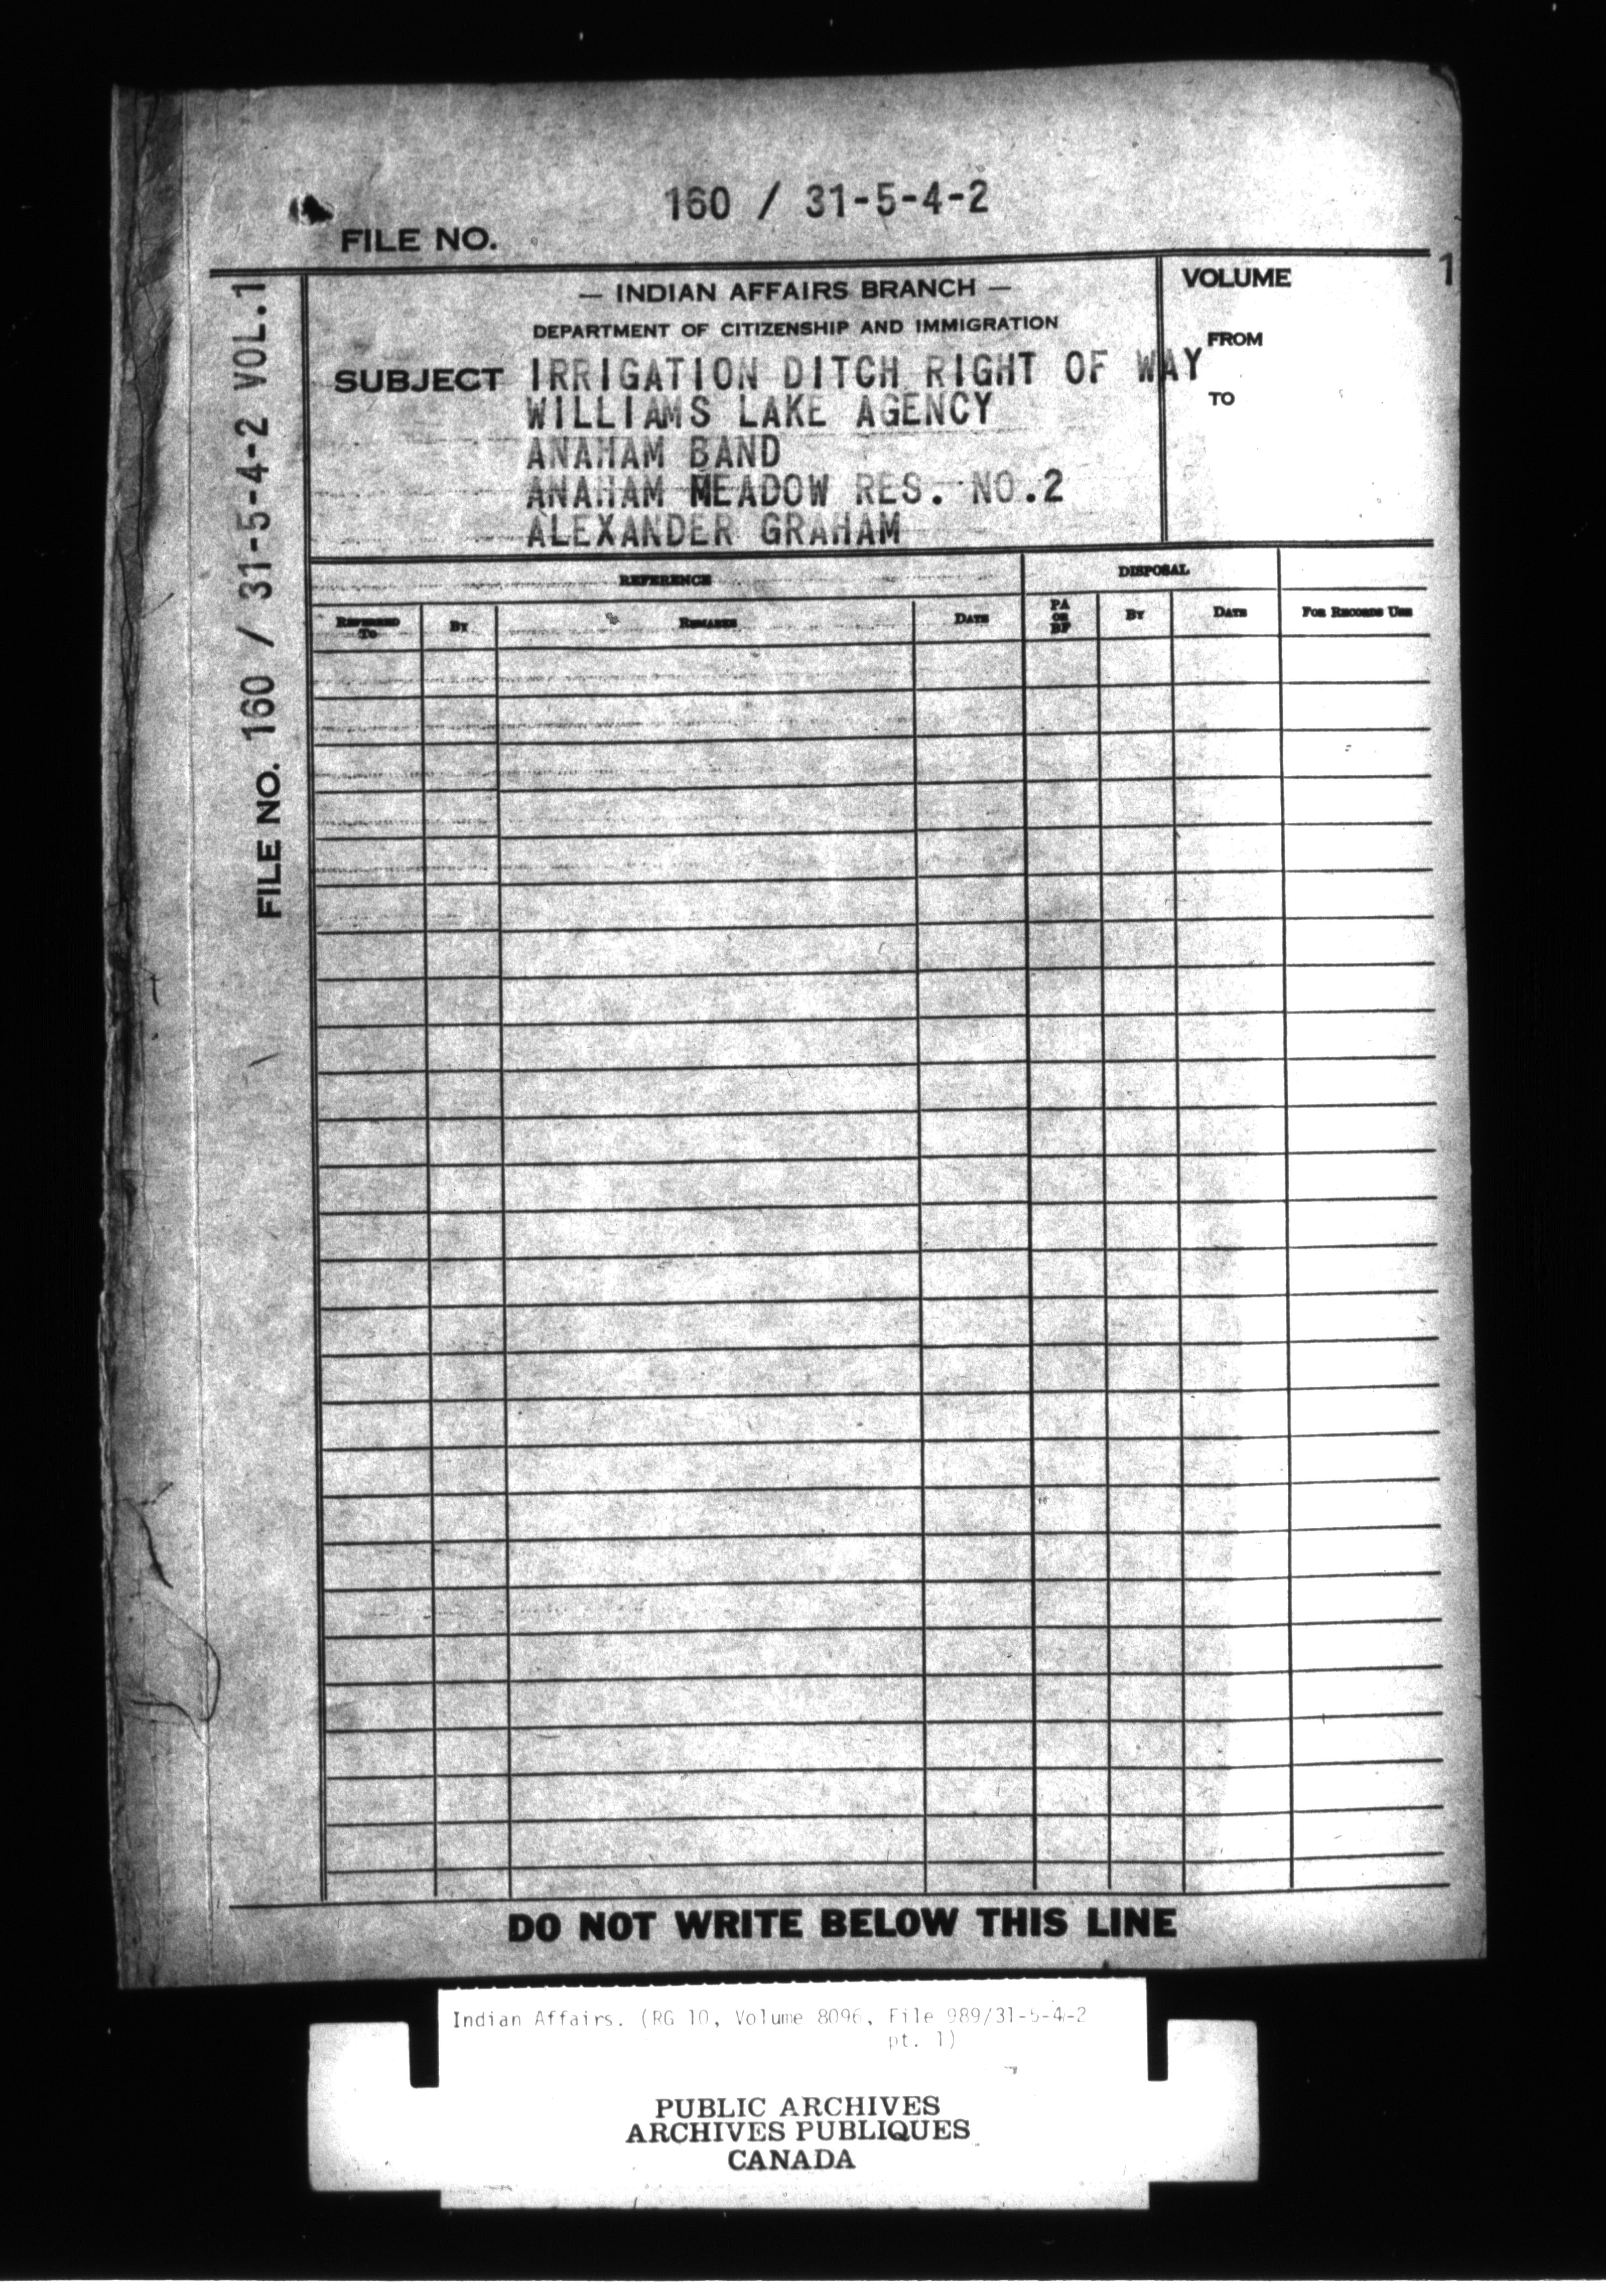 160 / 31-5-4-2
FILE NO.
FILE NO. 160 / 31-5-4-2 VOL.1
— INDIAN AFFAIRS BRANCH —
DEPARTMENT OF CITIZENSHIP AND IMMIGRATION
VOLUME 1
FROM
TO
SUBJECT IRRIGATION DITCH RIGHT OF WAY
WILLIAMS LAKE AGENCY
ANAHAM BAND
ANAHAM MEADOW RES. NO.2
ALEXANDER GRAHAM
REFERENCE DISPOSAL
REFERRED TO BY REMARKS DATE PA OR BF BY DATE FOR RECORDS USE
DO NOT WRITE BELOW THIS LINE
Indian Affairs. (RG 10, Volume 8096, File 989/31-5-4-2
pt. 1)
PUBLIC ARCHIVES
ARCHIVES PUBLIQUES
CANADA